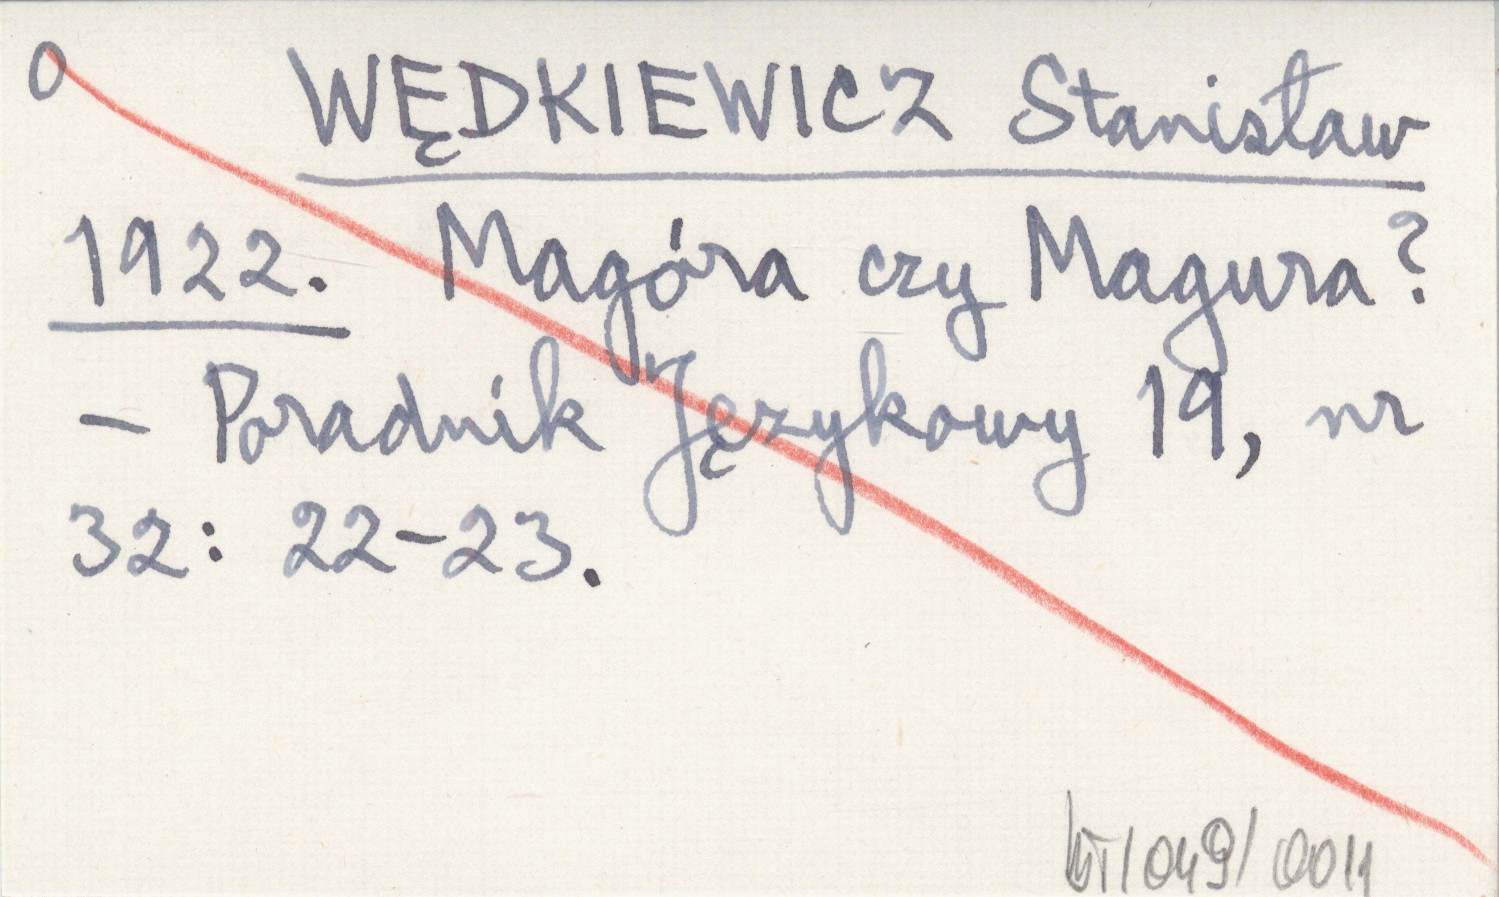 O
WĘDKIEWICZ Stanisław
1922. Magóra czy Magura?
- Poradnik Językowy 19, nr
32: 22-23.
/049/0011